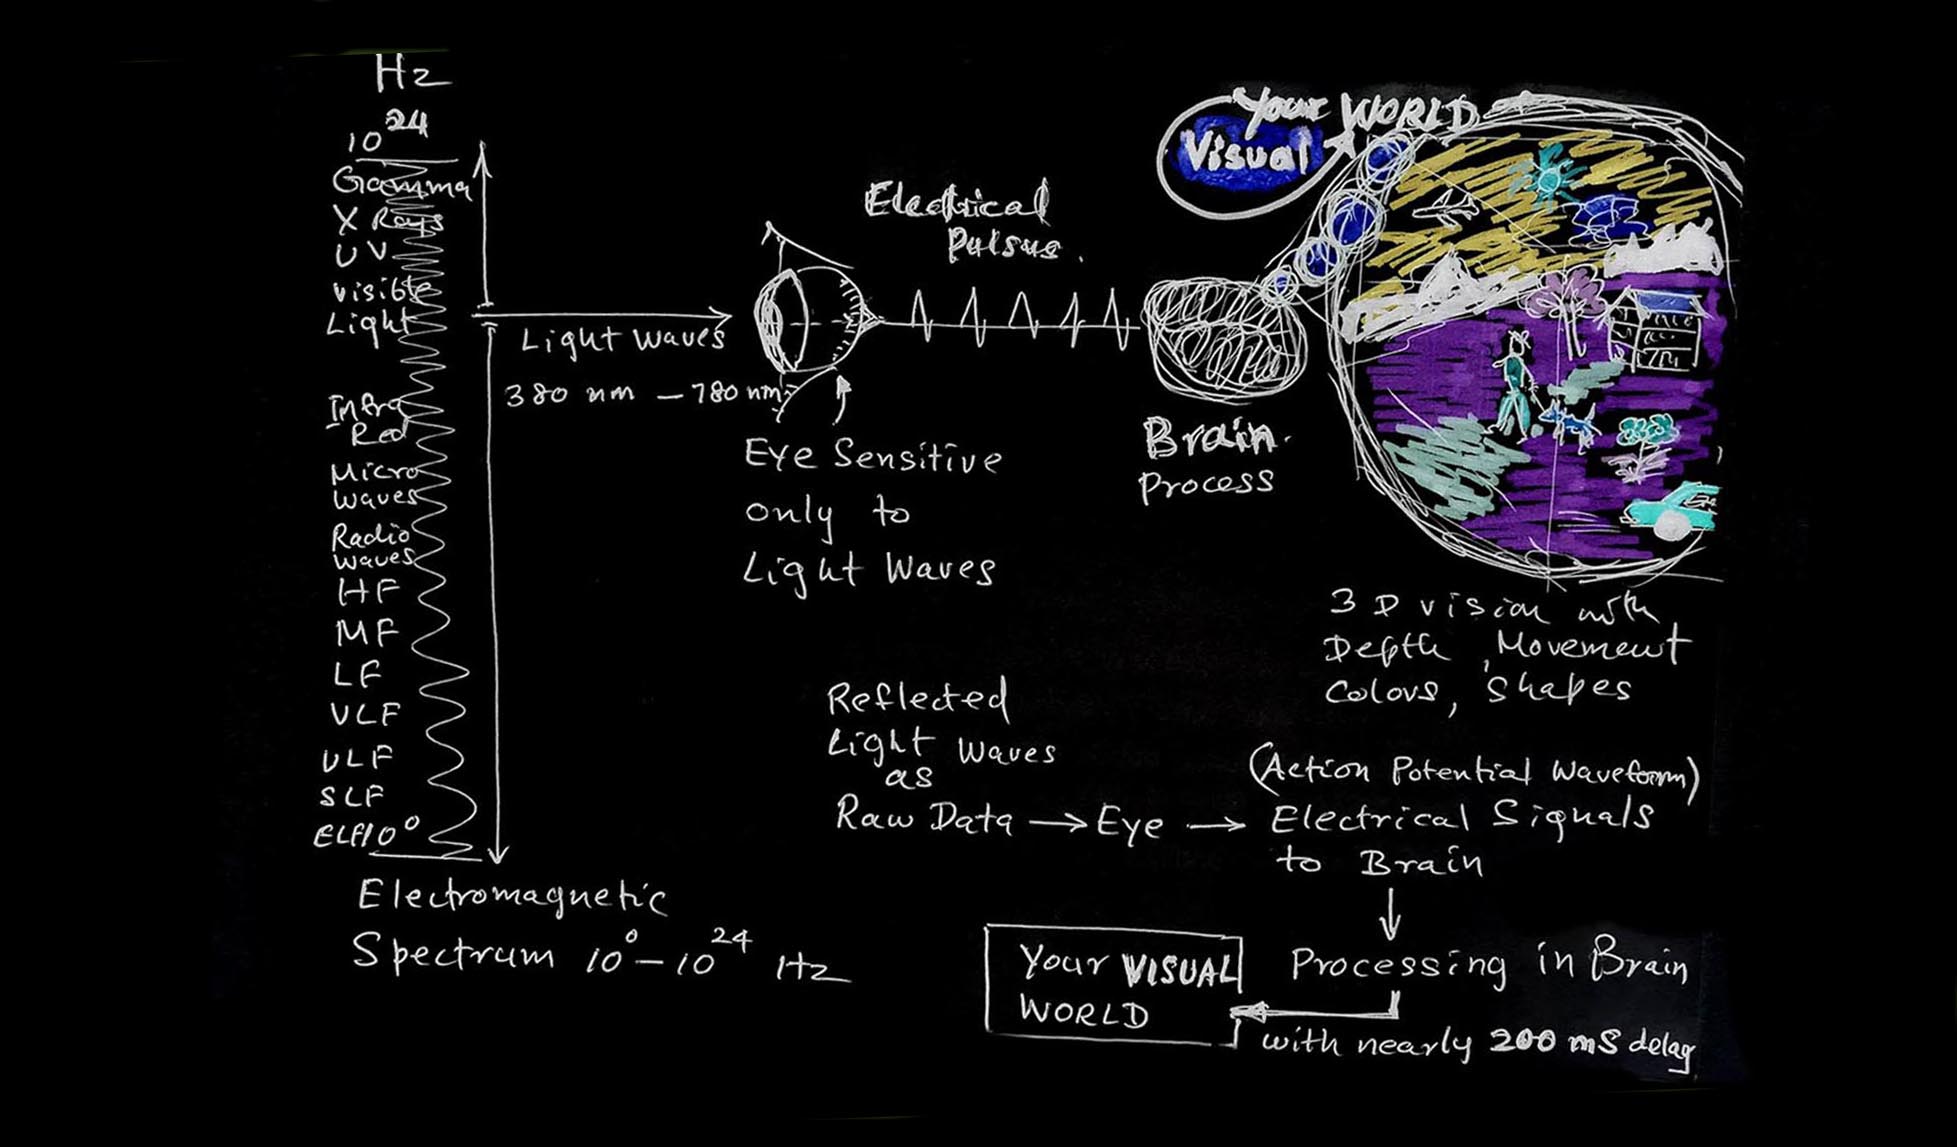 Hz
10^24
Gamma
X Rays
UV
Visible
Light
Infra
Red
Micro
Waves
Radio
Waves
HF
MF
LF
VLF
ULF
SLF
ELF10^0
Electromagnetic
Spectrum 10^0 – 10^24 Hz
Light Waves
380 nm – 780 nm
Eye Sensitive
only to
Light Waves
Electrical
Pulsus.
Brain.
Process
Your WORLD
Visual
3 D vision with
Depth, Movement
Colors, Shapes
Reflected
Light Waves
as
Raw Data → Eye → Electrical Signals
(Action Potential Waveform)
to Brain
Processing in Brain
with nearly 200 mS delay
Your VISUAL
WORLD